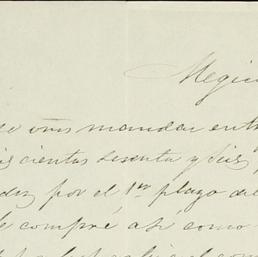 Megi
se vms mandar entr
is cientos sesenta y seis
dez por el 1er plazo de
le compré así como